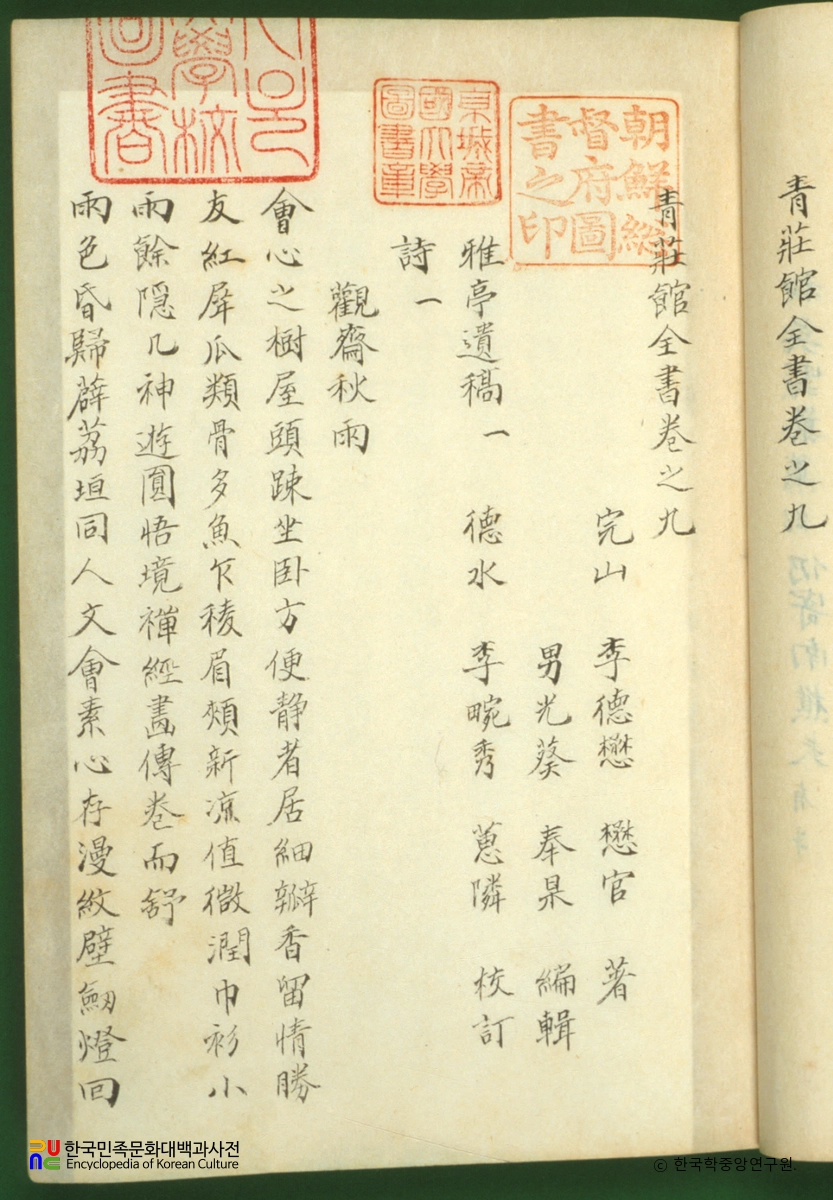 青莊館全書卷之九
朝鮮総督府圖書之印
京城帝國大學圖書章
學校圖書
青莊館全書卷之九
完山 李德懋 懋官 著
男光葵 奉杲 編輯
雅亭遺稿一 德水 李畹秀 蕙隣 校訂
詩一
觀齋秋雨
會心之樹屋頭踈坐卧方便静者居細瓣香留情勝
友紅犀瓜類骨多魚乍稜眉頰新凉值微潤巾衫小
雨餘隠几神遊圓悟境禪經畵傳卷而舒
雨色昏歸薜荔垣同人文會素心存漫紋壁劒燈回
한국민족문화대백과사전
Encyclopedia of Korean Culture
© 한국학중앙연구원.